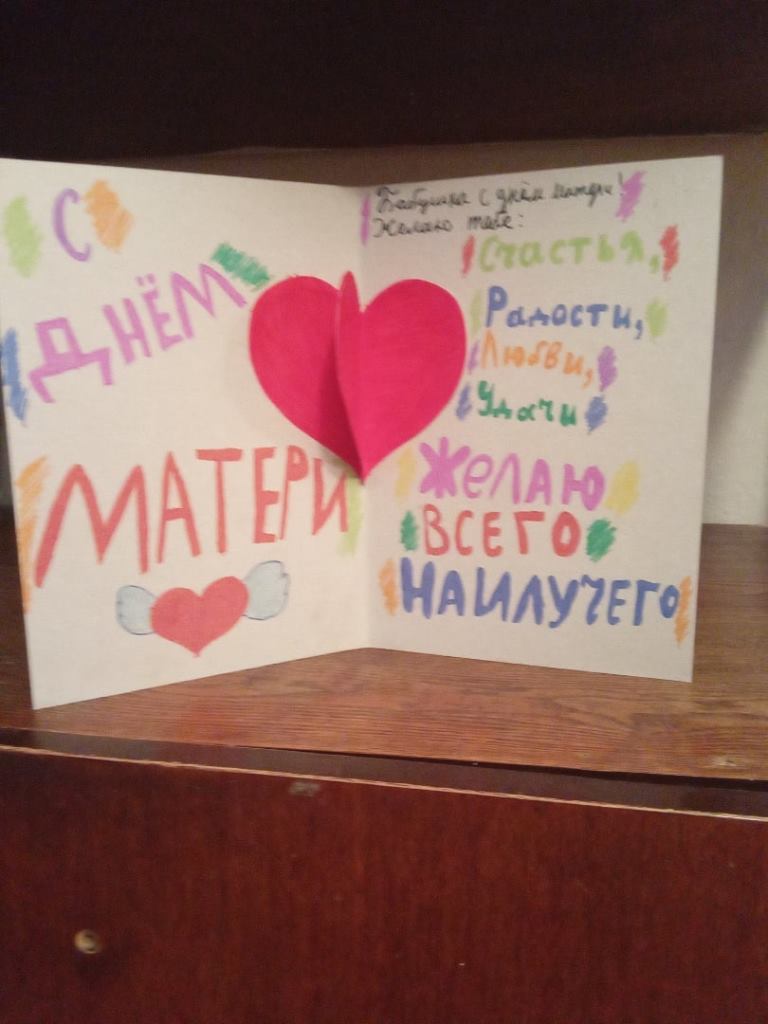 С
ДНЁМ
МАТЕРИ
Бабушка с днём матери!
Желаю тебе:
Счастья,
Радости,
Любви,
Удачи
Желаю
ВСЕГО
НАИЛУЧЕГО